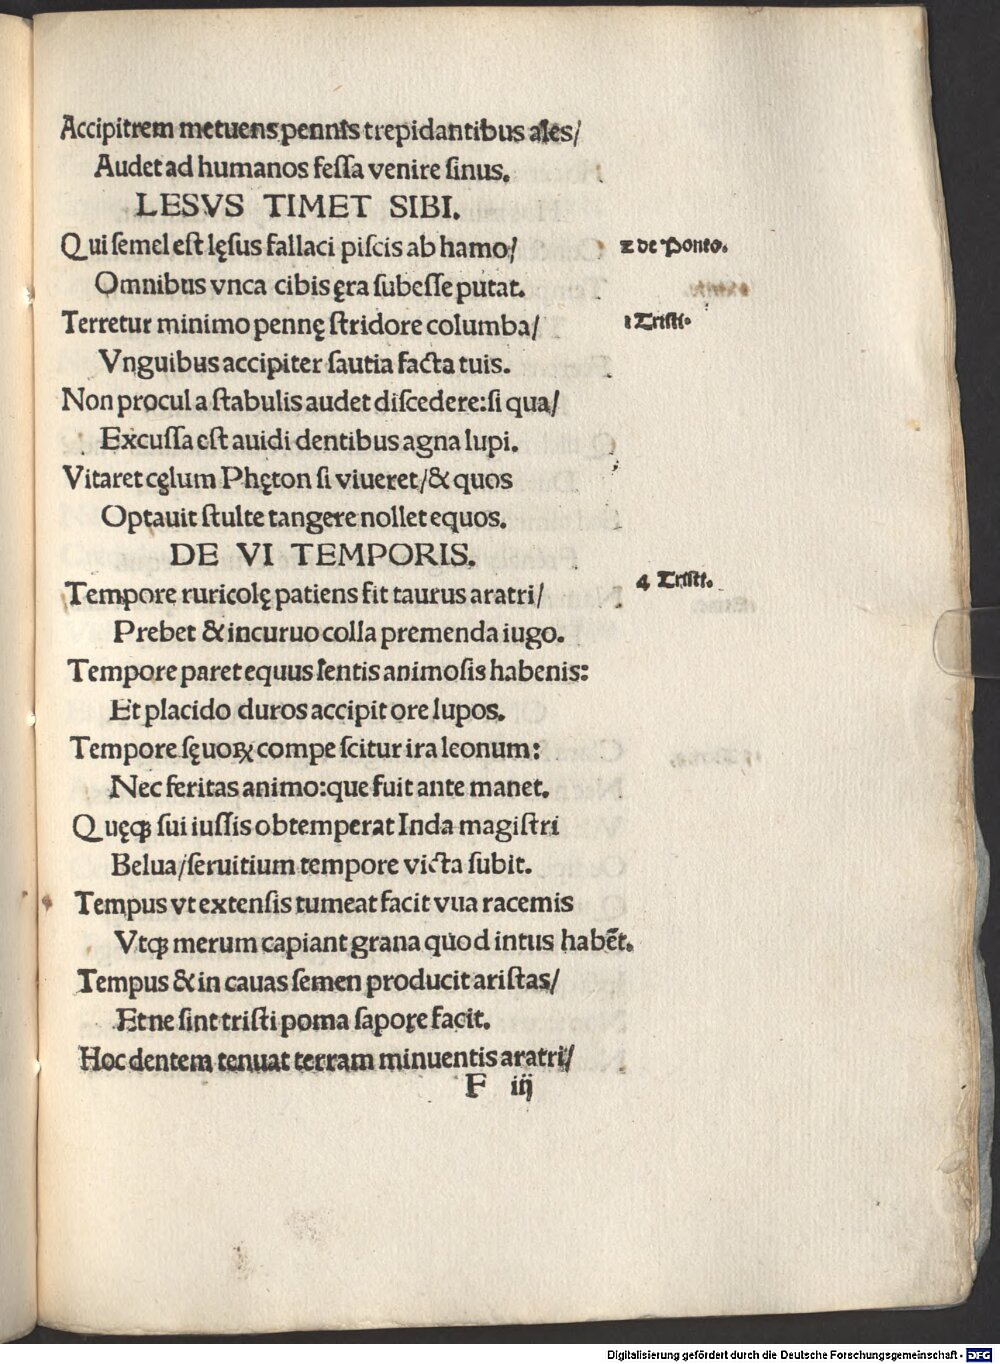 Accipitrem metuens pennis trepidantibus ales/
Audet ad humanos feſſa venire ſinus.
LESVS TIMET SIBI.
Qui ſemel eſt lęſus fallaci piſcis ab hamo/ 2 de Ponto.
Omnibus vnca cibis ęra ſubeſſe putat.
Terretur minimo pennę ſtridore columba/ 1 Triſti.
Vnguibus accipiter ſautia facta tuis.
Non procul a ſtabulis audet diſcedere: ſi qua/
Excuſſa eſt auidi dentibus agna lupi.
Vitaret cęlum Phęton ſi viueret/ & quos
Optauit ſtulte tangere nollet equos.
DE VI TEMPORIS.
4 Triſti.
Tempore ruricolę patiens fit taurus aratri/
Prebet & incuruo colla premenda iugo.
Tempore paret equus lentis animoſis habenis:
Et placido duros accipit ore lupos.
Tempore ſęuoꝝ compeſcitur ira leonum:
Nec feritas animo: que fuit ante manet.
Quęqꝫ ſui iuſſis obtemperat Inda magiſtri
Belua/ ſeruitium tempore victa ſubit.
Tempus vt extenſis tumeat facit vua racemis
Vtqꝫ merum capiant grana quod intus habẽt.
Tempus & in cauas ſemen producit ariſtas/
Et ne ſint triſti poma ſapore facit.
Hoc dentem tenuat terram minuentis aratri/
F iij
Digitalisierung gefördert durch die Deutsche Forschungsgemeinschaft - DFG